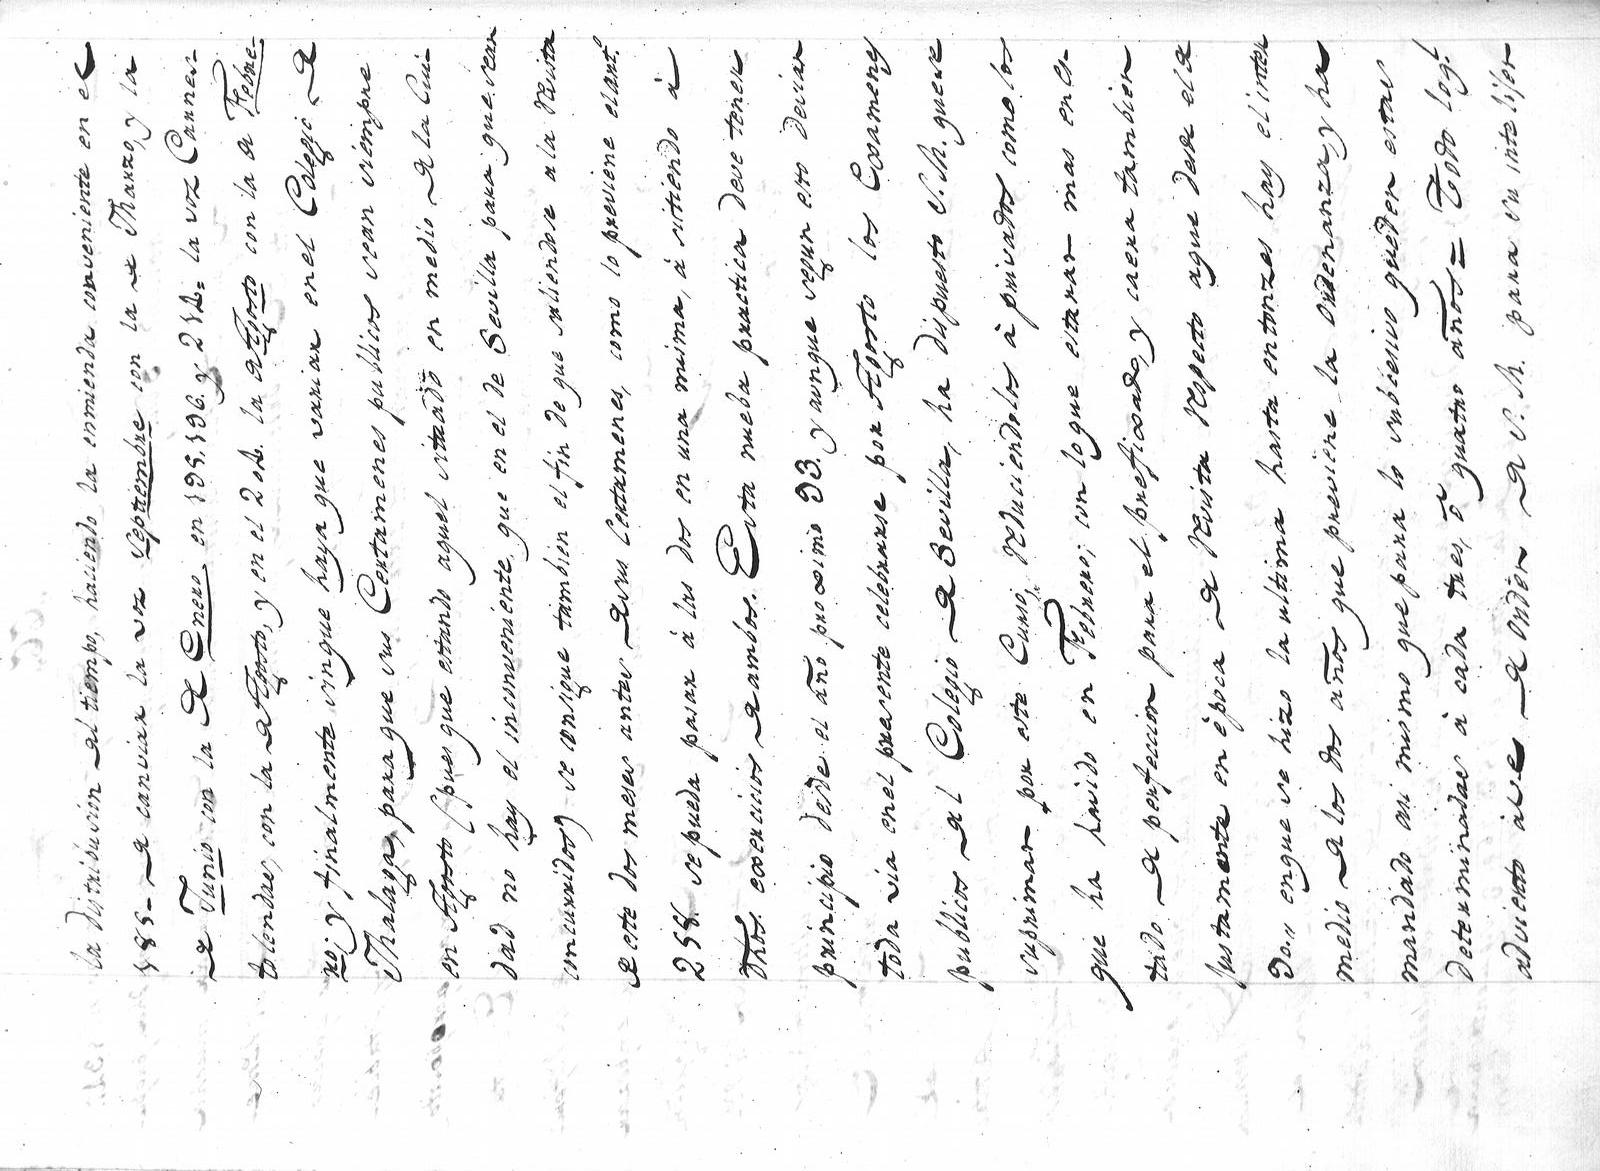 la distribucion del tiempo, haciendo la enmienda conveniente en el
185- de canviar la voz Septiembre con la de Marzo, y la
de Junio con la de Enero en 195.196. y 212= la voz Carnes-
tolendas, con la de Agosto, y en el 202. la de Agosto con la de Febre-
ro; y finalmente sin que haya que variar en el Colegio de
Malaga, para que sus Certamenes publicos sean siempre
en Agosto (pues que estando aquel situado en medio de la Ciu-
dad no hay el inconveniente, que en el de Sevilla para que sean
concurridos) se consigue tambien el fin de que saliendose a la Visita
de este dos meses antes de sus Certamenes, como lo previene el art.º
258. se pueda pasar à las dos en una misma, à sistiendo à
dhos. exercicios de ambos. Esta nueba practica deve tener
principio desde el año proximo 93, y aunque segun esto devian
toda via en el presente celebrarse por Agosto los Examenes
publicos del Colegio de Sevilla, ha dispuesto S.M. que se
supriman por este Curso, reduciendolos à privados como los
que ha havido en Febrero; con lo que estaran mas en es-
tado de perfeccion para el prefixado, y caera tambien
justamente en època de Visita respecto a que desde el de
90,, en que se hizo la ultima hasta entonzes hay el inter-
medio de los dos años que previene la Ordenanza, y ha
mandado asi mismo que para lo subcesivo queden estas
determinadas à cada tres, ò quatro años = Todo lo q.l
advierto à V.S. de orden de S.M. para su intelifen-